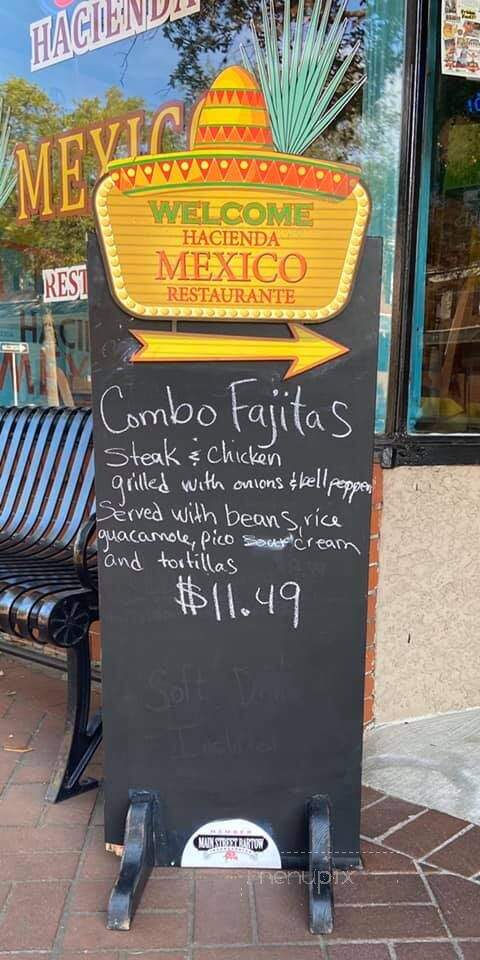 HACIENDA
MEXIC
WELCOME
HACIENDA
MEXICO
RESTAURANTE
REST
HACI
Combo Fajitas
Steak & Chicken
grilled with onions & bell peppers
Served with beans, rice
guacamole, pico sour cream
and tortillas
$11.49
Soft
MEMBER
MAIN STREET BARTOW
menupix